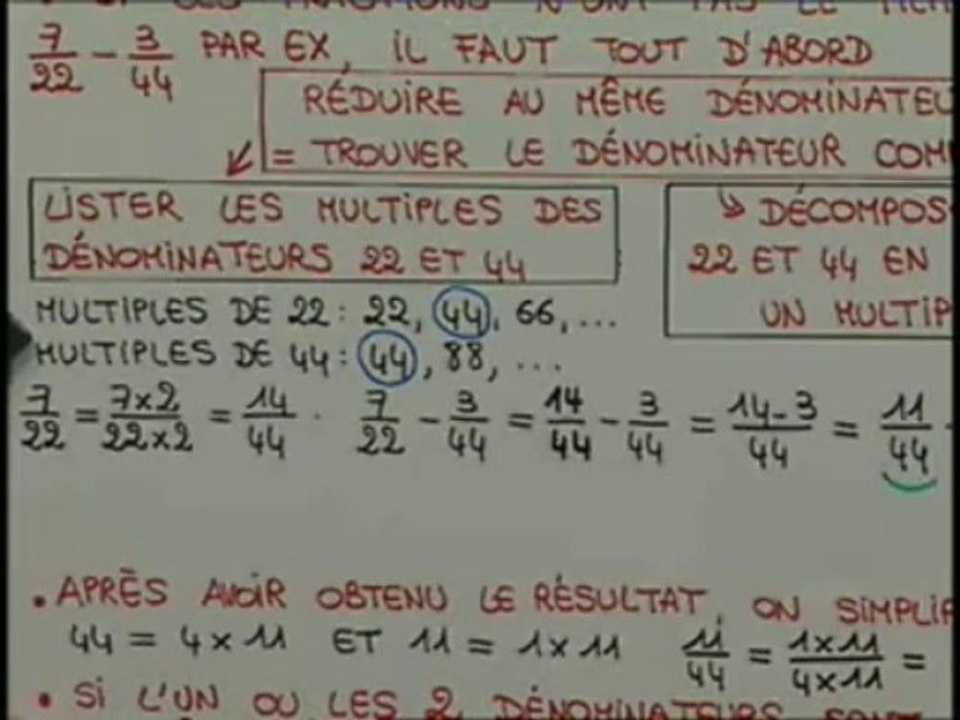 7/22 - 3/44 PAR EX, IL FAUT TOUT D'ABORD
RÉDUIRE AU MÊME DÉNOMINATEU
= TROUVER LE DÉNOMINATEUR COM
LISTER LES MULTIPLES DES
DÉNOMINATEURS 22 ET 44
↳ DÉCOMPOS
22 ET 44 EN
UN MULTIP
MULTIPLES DE 22 : 22, 44, 66, ...
MULTIPLES DE 44 : 44, 88, ...
7/22 = 7x2/22x2 = 14/44 . 7/22 - 3/44 = 14/44 - 3/44 = 14-3/44 = 11/44
• APRÈS AVOIR OBTENU LE RÉSULTAT, ON SIMPLIF
44 = 4 x 11 ET 11 = 1 x 11 11/44 = 1x11/4x11 =
• SI L'UN OU LES 2 DÉNOMINATEURS SONT